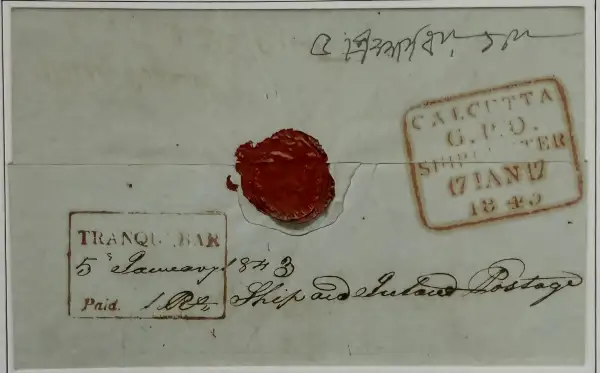 CALCUTTA
G.P.O.
SHIP LETTER
17 JAN 17
1843
TRANQUEBAR
5 January 1843
Paid. 1 Re Ship and Inland Postage